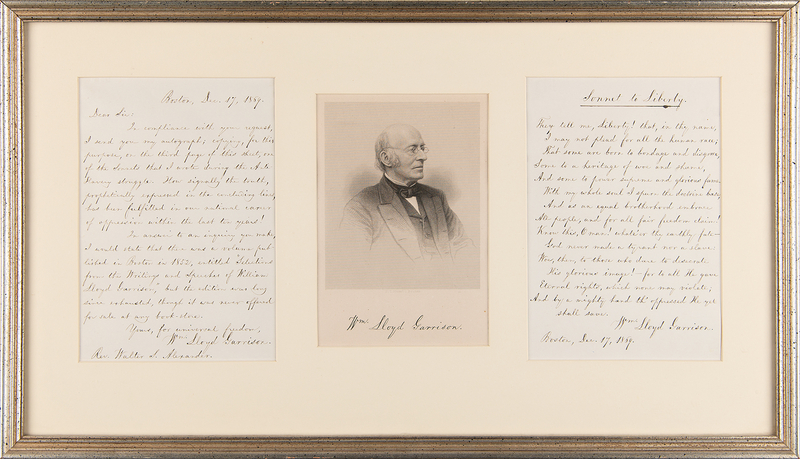 Boston, Dec. 17, 1869.
Dear Sir:
In compliance with your request,
I send you my autograph; copying, for this
purpose, on the third page of this sheet, one
of the Sonnets that I wrote during the Anti-
Slavery struggle. How signally the truth,
prophetically expressed in the concluding lines,
has been fulfilled in our national career
of oppression within the last ten years!
In answer to an inquiry you make,
I would state that there was a volume pub-
lished in Boston in 1852, entitled "Selections
from the Writings and Speeches of William
Lloyd Garrison," but the edition was long
since exhausted, though it was never offered
for sale at any book-store.
Yours, for universal freedom,
Wm. Lloyd Garrison.
Rev. Walter S. Alexander.
Wm. Lloyd Garrison.
Sonnet to Liberty.
They tell me, Liberty! that, in thy name,
I may not plead for all the human race;
That some are born to bondage and disgrace,
Some to a heritage of woe and shame,
And some to power supreme, and glorious fame.
With my whole soul I spurn the doctrine base,
And, as an equal brotherhood, embrace
All people, and for all fair freedom claim!
Know this, O man! whate'er thy earthly fate—
God never made a tyrant nor a slave:
Woe, then, to those who dare to desecrate
His glorious image!—for to all He gave
Eternal rights, which none may violate;
And by a mighty hand th' oppressed He yet
shall save.
Wm. Lloyd Garrison.
Boston, Dec. 17, 1869.